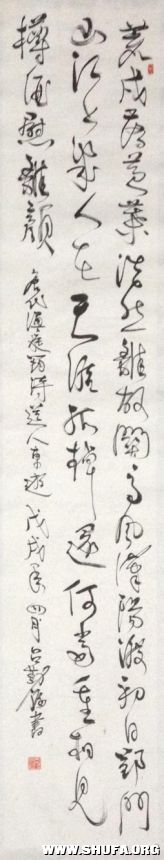 荒戍落黄葉浩然離故關高風漢陽渡初日郢門
山江上幾人在天涯孤棹還何當重相見
樽酒慰離顏 唐代溫庭筠詩送人東遊 戊戌年四月呂書
WWW.SHUFA.ORG